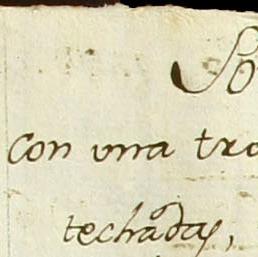 So
con vna tra
techadas,